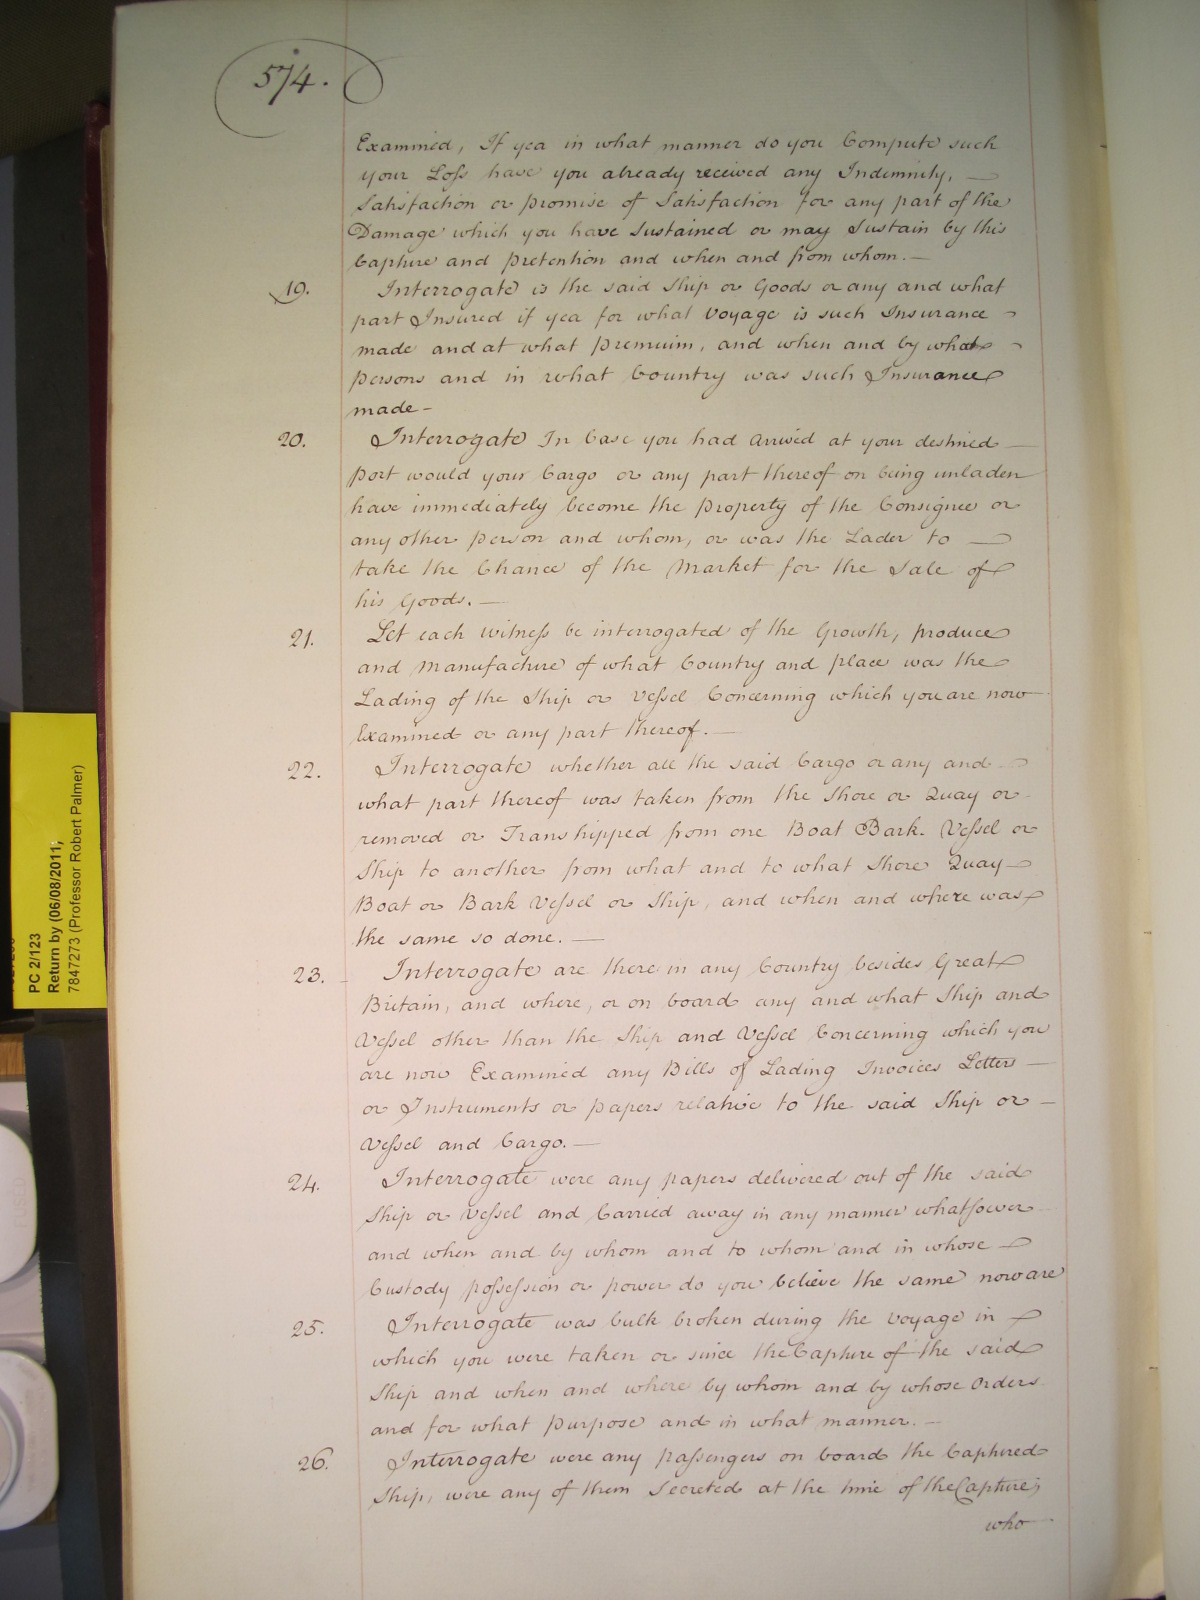 574.
Examined, If yea in what manner do you Compute such
your Loss have you already received any Indemnity, —
Satisfaction or promise of Satisfaction for any part of the
Damage which you have Sustained or may Sustain by this
Capture and Detention and when and from whom. —
19. Interrogate is the said Ship or Goods or any and what
part Insured if yea for what Voyage is such Insurance
made and at what premium, and when and by what
persons and in what Country was such Insurance
made –
20. Interrogate In Case you had arrived at your destined
Port would your Cargo or any part thereof on being unladen
have immediately become the Property of the Consignee or
any other person and whom, or was the Lader to —
take the Chance of the Market for the Sale of
his Goods. —
21. Let each witness be interrogated of the Growth, produce
and Manufacture of what Country and place was the
Lading of the Ship or Vessel Concerning which you are now
Examined or any part thereof. —
22. Interrogate whether all the said Cargo or any and
what part thereof was taken from the Shore or Quay or
removed or Transhipped from one Boat Bark. Vessel or
Ship to another from what and to what Shore Quay
Boat or Bark Vessel or Ship, and when and where was
the same so done. —
23. Interrogate are there in any Country besides Great
Britain, and where, or on board any and what Ship and
Vessel other than the Ship and Vessel Concerning which you
are now Examined any Bills of Lading Invoices Letters —
or Instruments or papers relative to the said Ship or —
Vessel and Cargo. —
24. Interrogate were any papers delivered out of the said
Ship or Vessel and Carried away in any manner whatsoever
and when and by whom and to whom and in whose
Custody possession or power do you believe the same now are
25. Interrogate was bulk broken during the Voyage in
which you were taken or since the Capture of the said
Ship and when and where by whom and by whose Orders
and for what Purpose and in what manner. —
26. Interrogate were any passengers on board the Captured
Ship, were any of them Secreted at the time of the Capture;
who
PC 2/123
Return by (06/08/2011;
7847273 (Professor Robert Palmer)